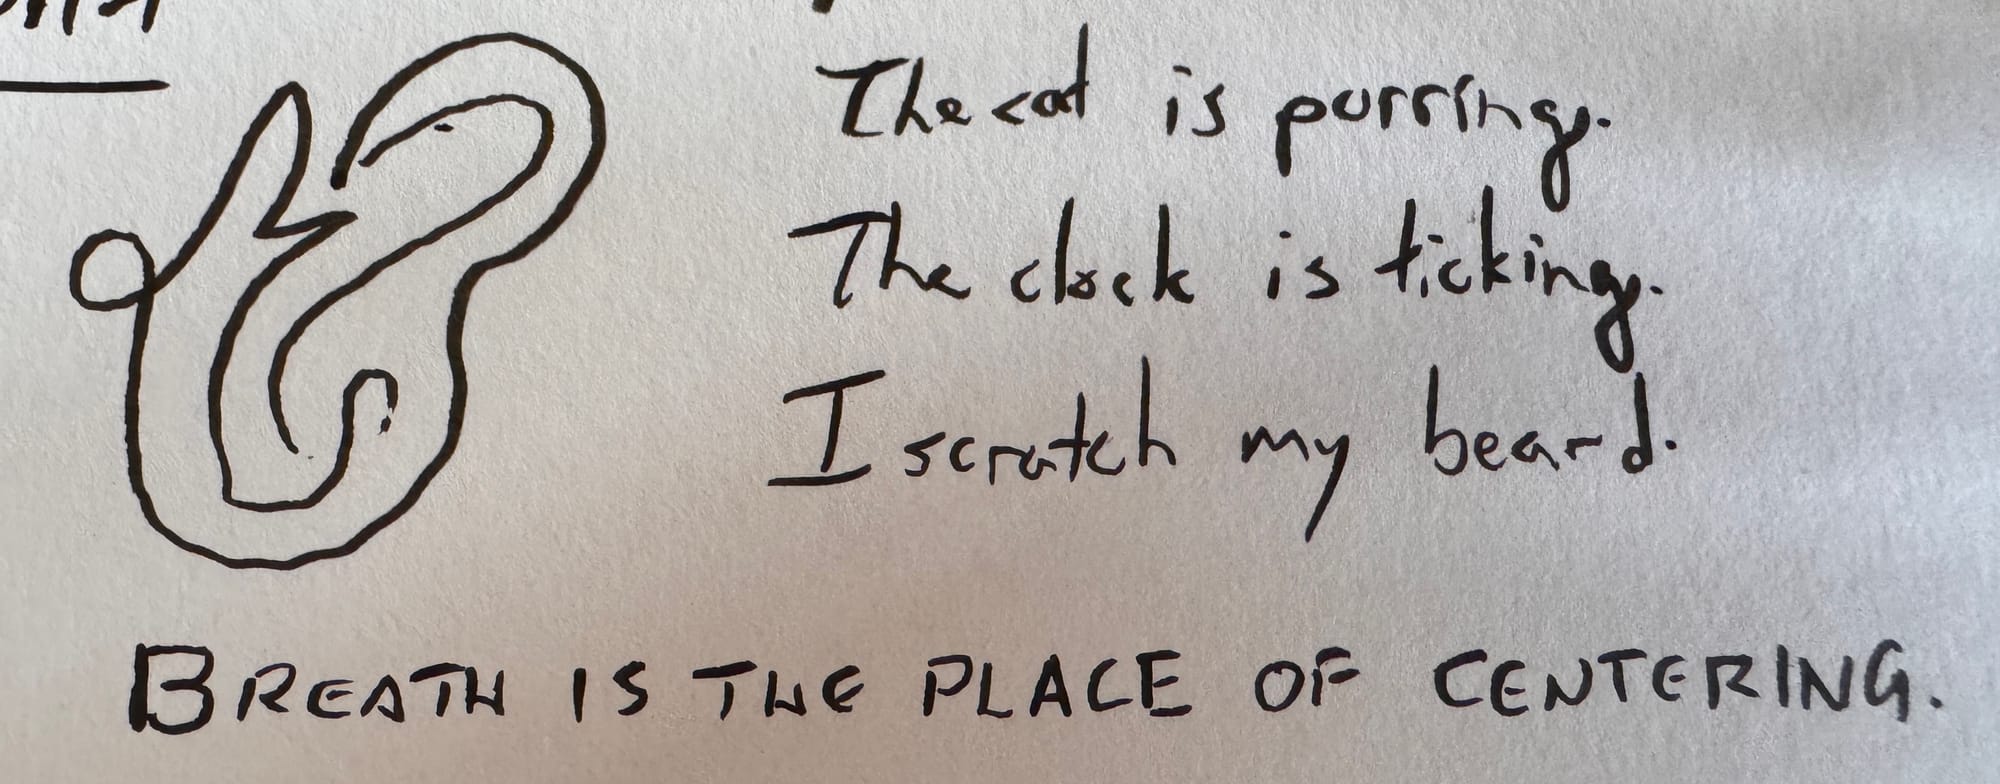 The cat is purring.
The clock is ticking.
I scratch my beard.
BREATH IS THE PLACE OF CENTERING.